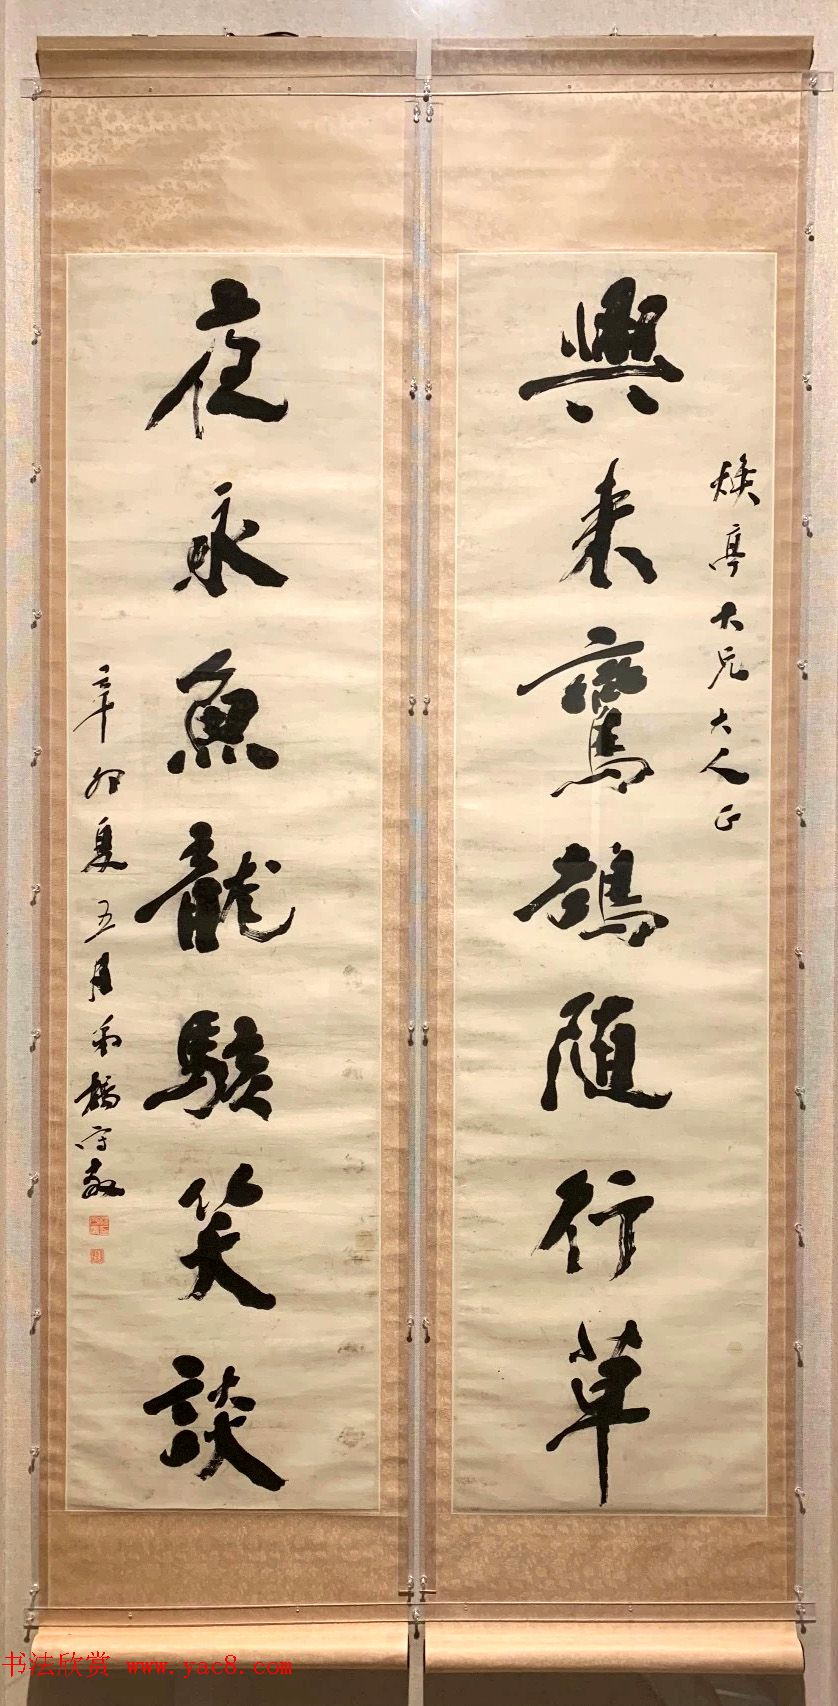 煥亭大兄大人正
興来鸞鵠随行草
夜永魚龍駭笑談
辛卯夏五月弟楊守敬
书法欣赏 www.yac8.com